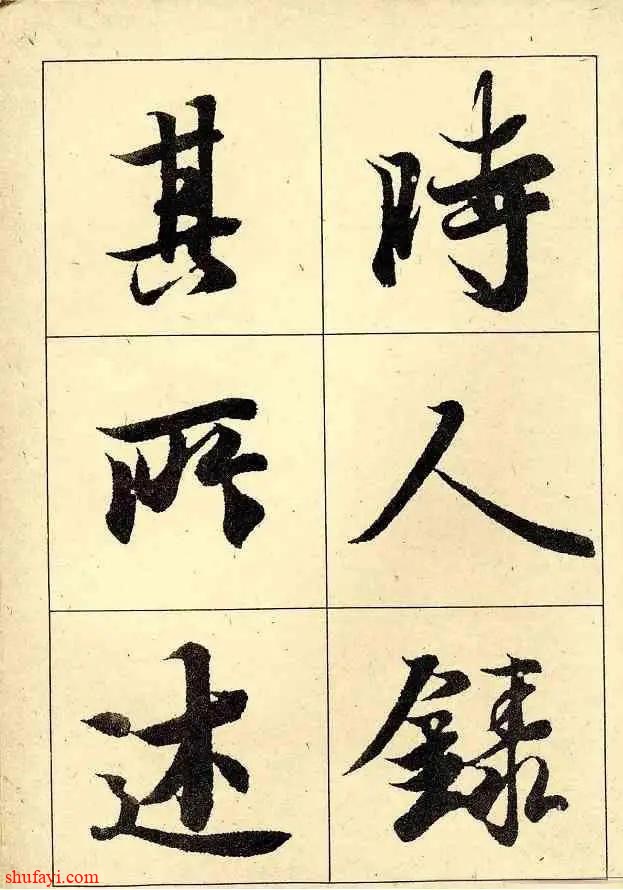 時人錄
其所述
shufayi.com